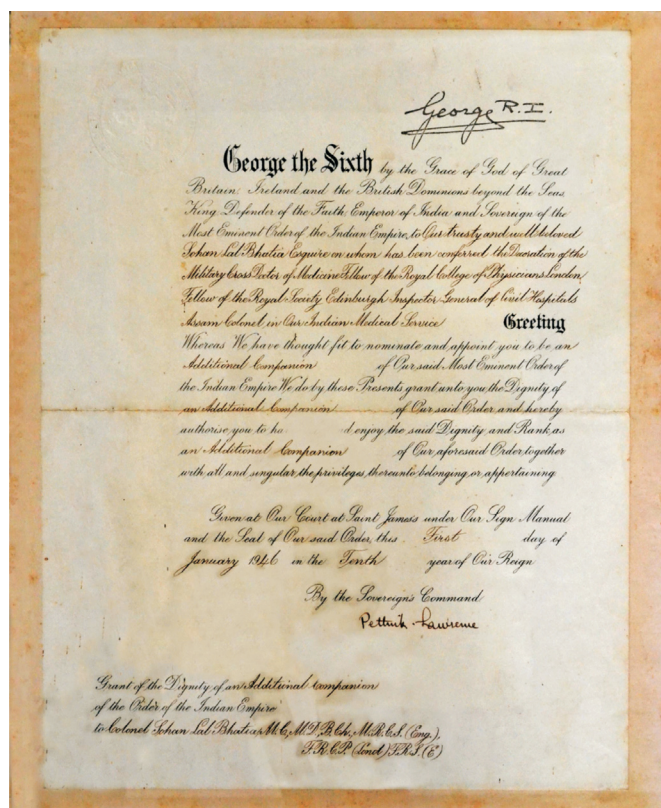 George R.I.
George the Sixth by the Grace of God of Great
Britain, Ireland and the British Dominions beyond the Seas
King, Defender of the Faith, Emperor of India and Sovereign of the
Most Eminent Order of the Indian Empire, to Our trusty and well beloved
Sohan Lal Bhatia Esquire on whom has been conferred the Decoration of the
Military Cross Doctor of Medicine Fellow of the Royal College of Physicians London,
Fellow of the Royal Society Edinburgh Inspector General of Civil Hospitals
Assam Colonel in Our Indian Medical Service Greeting
Whereas We have thought fit to nominate and appoint you to be an
Additional Companion of Our said Most Eminent Order of
the Indian Empire We do by these Presents grant unto you the Dignity of
an Additional Companion of Our said Order and hereby
authorise you to ha d enjoy the said Dignity and Rank as
an Additional Companion of Our aforesaid Order, together
with all and singular the privileges thereunto belonging or appertaining
Given at Our Court at Saint James's under Our Sign Manual
and the Seal of Our said Order, this First day of
January 1946 in the Tenth year of Our Reign
By the Sovereign's Command
Pethick-Lawrence
Grant of the Dignity of an Additional Companion
of the Order of the Indian Empire
to Colonel Sohan Lal Bhatia M.C., M.D., B.Ch., M.R.C.S. (Eng.),
F.R.C.P. (Lond), F.R.S. (E)